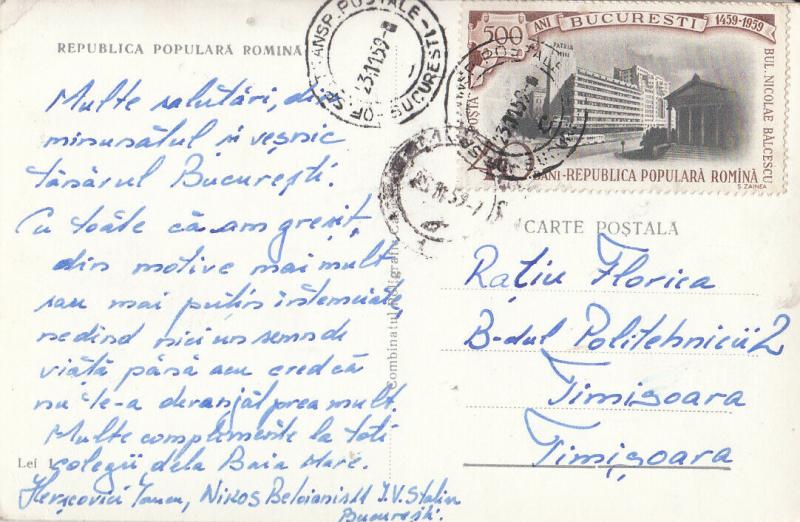 REPUBLICA POPULARĂ ROMÎNĂ
Multe salutări, din
minunatul și veșnic
tânărul București.
Cu toate că am greșit,
din motive mai mult
sau mai puțin întemeiate,
nedînd nici un semn de
viață până acu cred că
nu te-a deranjat prea mult.
Multe complimente la toți
colegii dela Baia Mare.
Lei 1
Herșcovici Iancu, Nikos Beloianis 11 I.V. Stalin
București.
Combinatul Poligrafic
OF. SP. TRANSP. POȘTALE - BUCUREȘTI
23.11.59
500 ANI BUCUREȘTI 1459-1959
BUL. NICOLAE BĂLCESCU
POȘTA
BANI-REPUBLICA POPULARĂ ROMÎNĂ
Ș. ZAINEA
CARTE POȘTALĂ
Rațiu Florica
B-dul Politehnicii 2
Timișoara
Timișoara